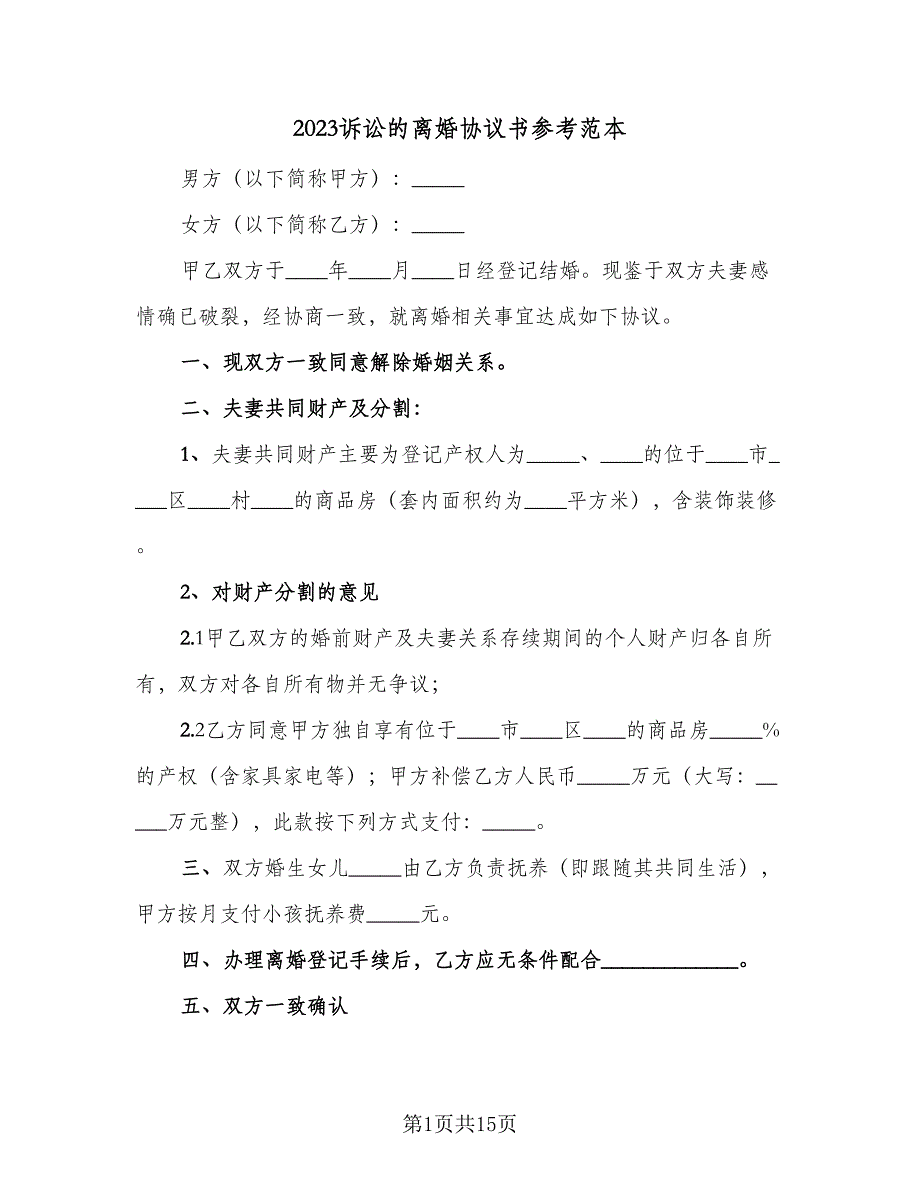 2023诉讼的离婚协议书参考范本
男方（以下简称甲方）：_____
女方（以下简称乙方）：_____
甲乙双方于____年____月____日经登记结婚。现鉴于双方夫妻感
情确已破裂，经协商一致，就离婚相关事宜达成如下协议。
一、现双方一致同意解除婚姻关系。
二、夫妻共同财产及分割：
1、夫妻共同财产主要为登记产权人为_____、____的位于____市_
___区____村____的商品房（套内面积约为____平方米），含装饰装修
。
2、对财产分割的意见
2.1甲乙双方的婚前财产及夫妻关系存续期间的个人财产归各自所
有，双方对各自所有物并无争议；
2.2乙方同意甲方独自享有位于____市____区____的商品房_____%
的产权（含家具家电等）；甲方补偿乙方人民币_____万元（大写：__
___万元整），此款按下列方式支付：_____。
三、双方婚生女儿_____由乙方负责抚养（即跟随其共同生活），
甲方按月支付小孩抚养费_____元。
四、办理离婚登记手续后，乙方应无条件配合_____________。
五、双方一致确认
第1页共15页